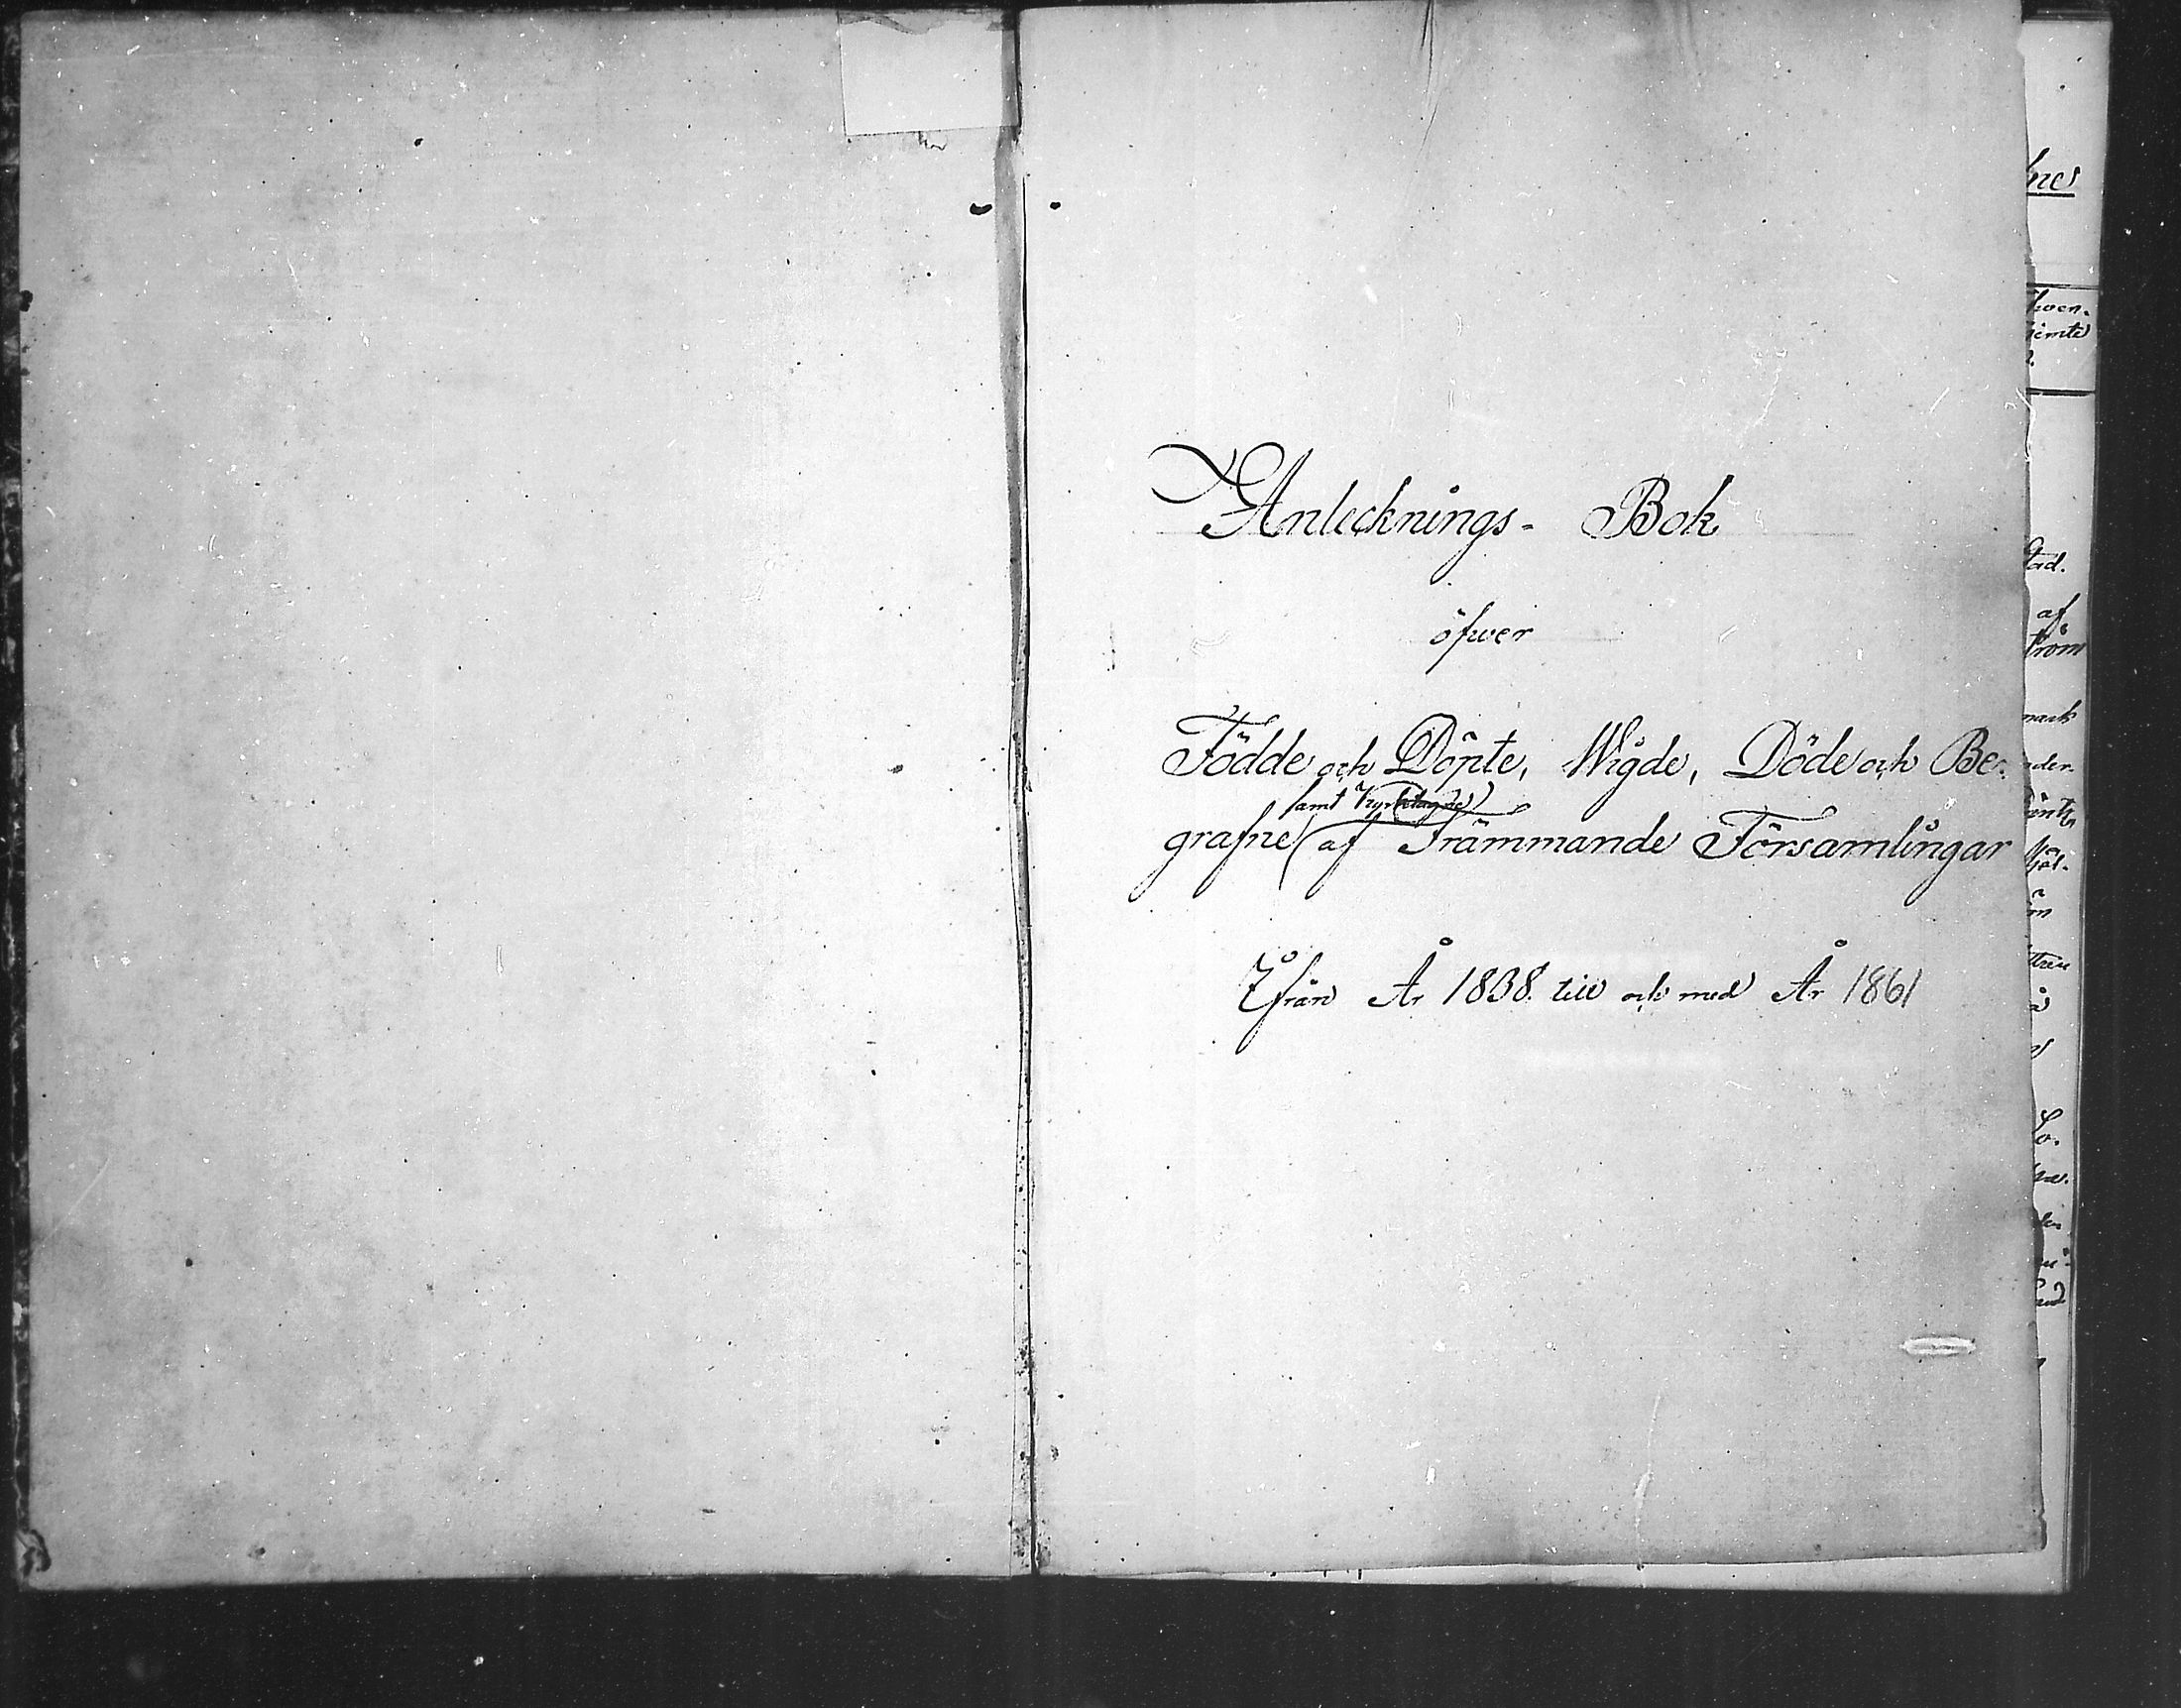 Antecknings- Bok
öfwer
Födde och Döpte, Wigde, Döde och Be-
samt Kyrktagne
grafne af Främmande Församlingar
Ifrån År 1838. till och med År 1861
nes
af
ström